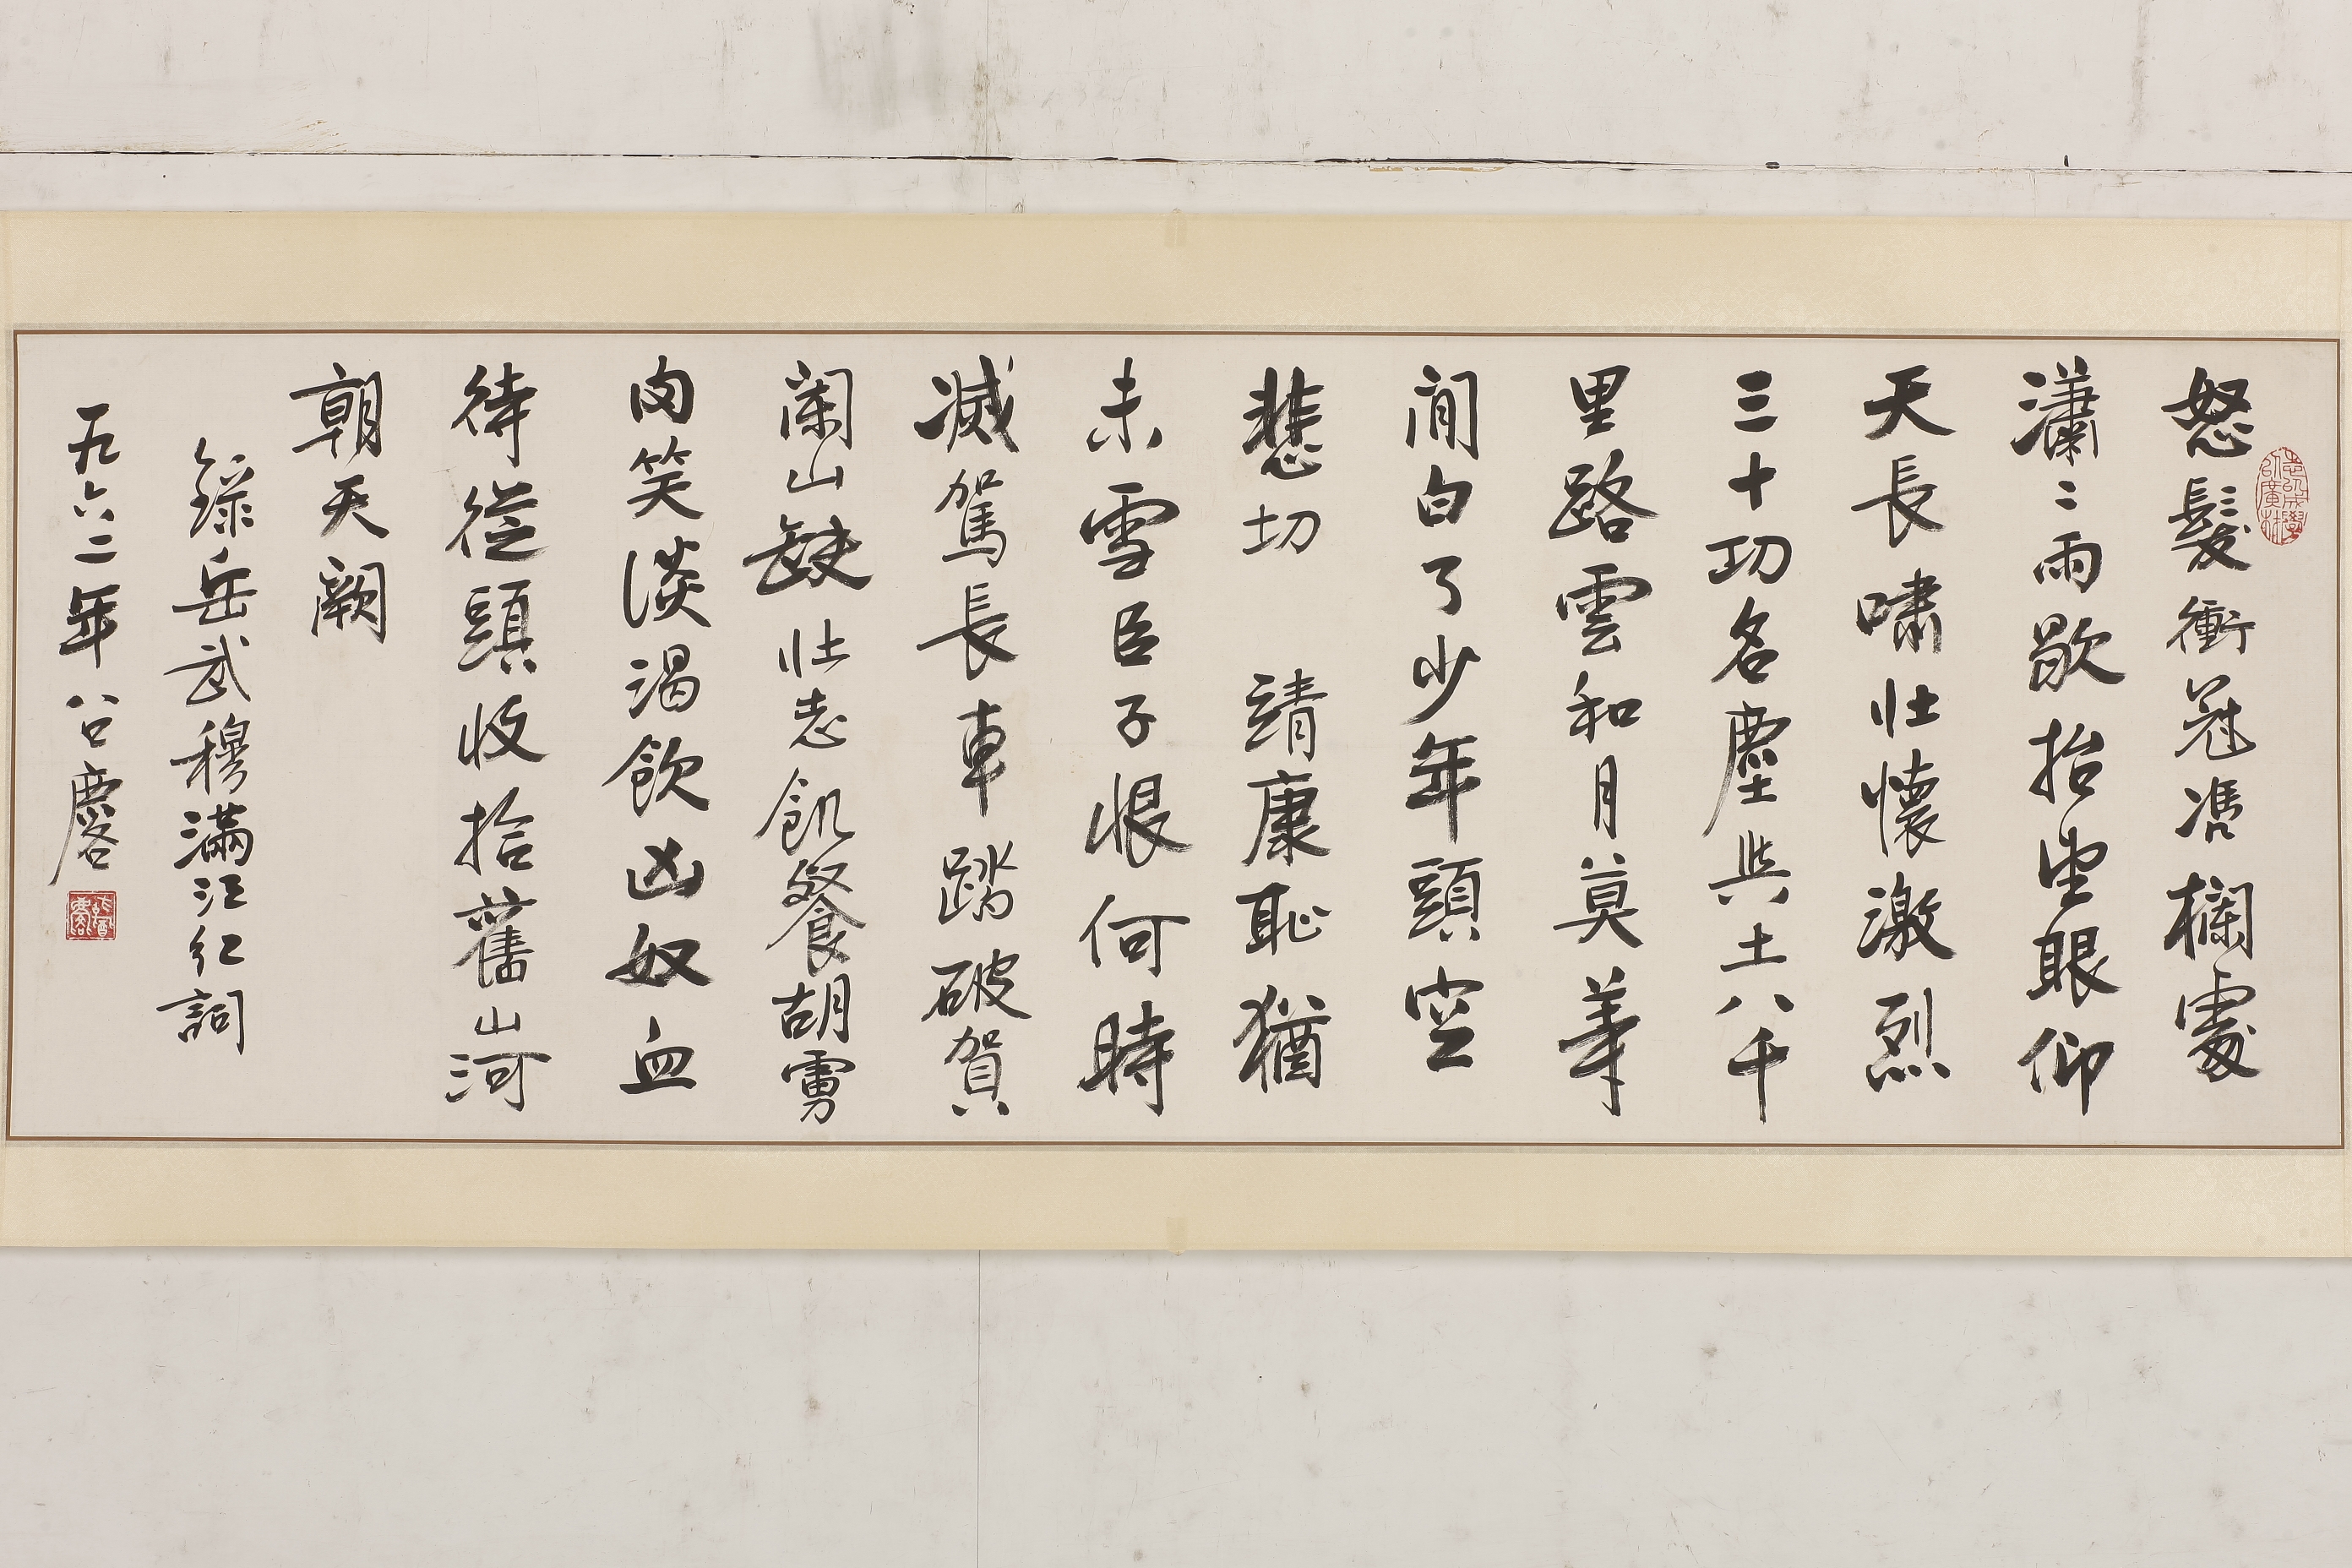 怒髮衝冠憑欄處
瀟〻雨歇抬望眼仰
天長嘯壯懷激烈
三十功名塵與土八千
里路雲和月莫等
閒白了少年頭空
悲切　靖康恥猶
未雪臣子恨何時
滅駕長車踏破賀
闌山缺壯志飢餐胡虜
肉笑談渴飲凶奴血
待從頭收拾舊山河
朝天闕
錄岳武穆滿江紅詞
九六二年